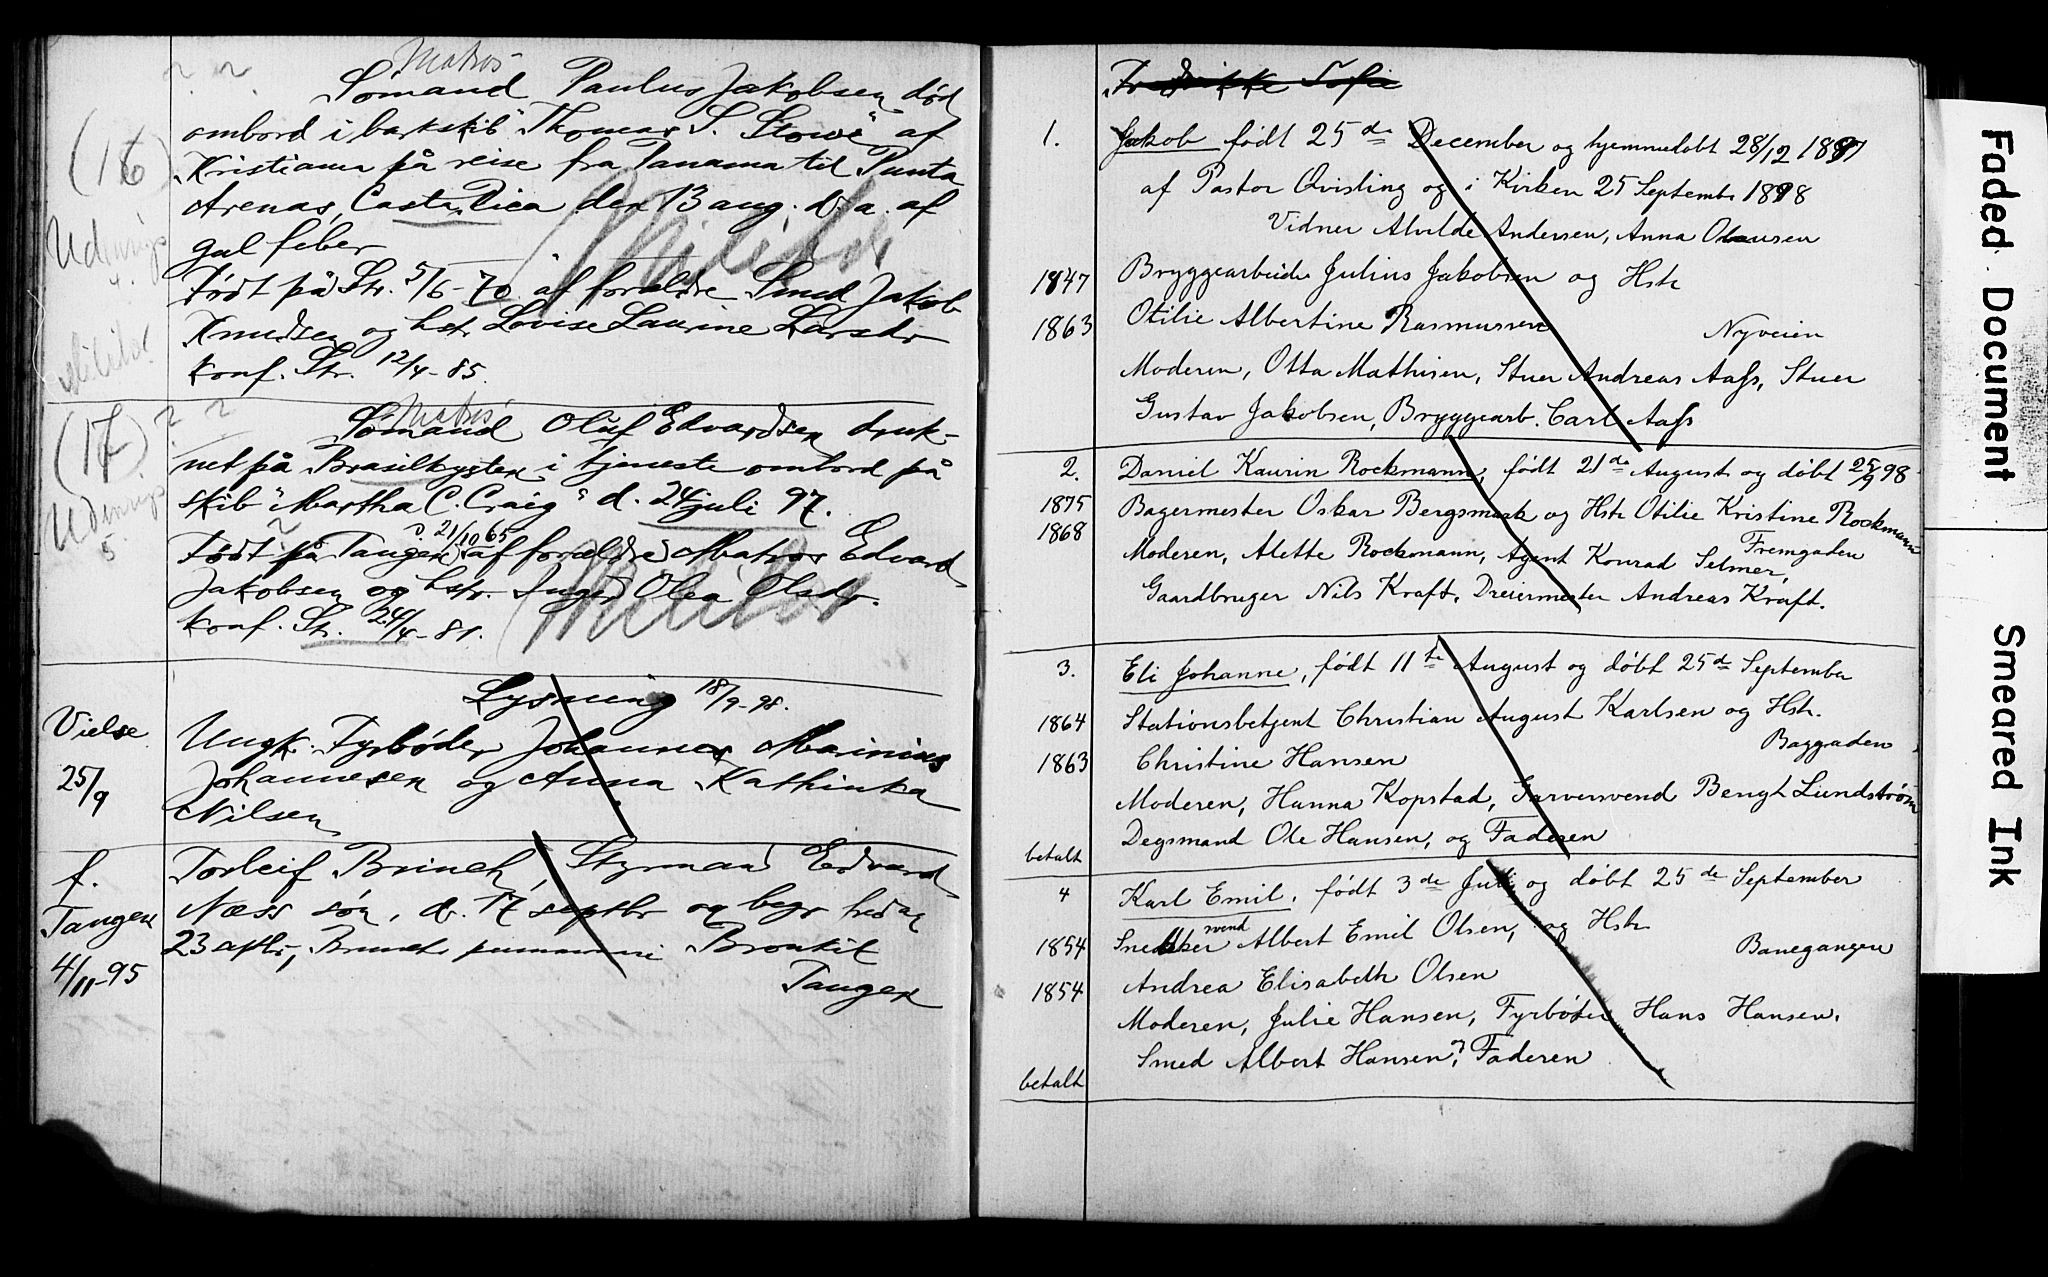 Matros
Sömand Paulus Jakobsen död
ombord i barkskib "Thomas S. Stowe" af
Kristiania på reise fra Panama til Punta
Arenas, Costa Rica den 13 aug. d. a. af
gul feber
Født på Str. 5/6-70 af forældre Smed Jakob
Knudsen og hstr Lovise Laurine Larsdr
Konf. Str. 12/4-85.
(16)
Militör
(17)
Matros
Sömand Oluf Edvardsen druk-
net på Brasilkysten i tjeneste ombord på
skib "Martha C. Craig" d. 24 juli 97.
21/10 65
Født på Tangen af forældre Matros Edvard
Jakobsen og hstr. Inger Olea Olsdr.
Konf. Str. 24/4-81.
5.
Lysning 18/9-98.
Vielse
25/9
Ungk. Fyrbøder Johannes Marinius
Johannesen og Anna Kathinka
Nilsen
f.
Tangen
4/11-95
Torleif Brinch, Styrmand Edvard
Næss søn, d. 17 septbr og begr
23 Bronkit
Tangen
Fredrikke Sofie
1. Jakob født 25de December og hjemmedøbt 28/12 1897
af Pastor Qvisling og i Kirken 25 Septembr 1898
Vidner Alvilde Andersen, Anna Olausen
1847 Bryggearbeider Julius Jakobsen og Hstr
1863 Otilie Albertine Rasmussen Nyveien
Moderen, Otta Mathisen, Stuer Andreas Aass, Stuer
Gustav Jakobsen, Bryggearb. Carl Aass
2. Daniel Kaurin Rockmann, født 21de August og døbt 25/9 98
1875 Bagermester Oskar Bergsmark og Hstr Otilie Kristine Rockmann
1868 Fremgaden
Moderen, Alette Rockmann, Agent Konrad Selmer,
Gaardbruger Nils Kraft, Dreiermester Andreas Kraft.
3. Eli Johanne, født 11te August og døbt 25de September
1864 Stationsbetjent Christian August Karlsen og Hstr.
1863 Christine Hansen Baggaden
Moderen, Hanna Kopstad, Garversvend Bengt Lundstrøm
Degsmand Ole Hansen, og Faderen
betalt
4 Karl Emil, født 3de Juli og døbt 25de September
1854 Snedkersvend Albert Emil Olsen, og Hstr
Banegangen
1854 Andrea Elisabeth Olsen
Moderen, Julie Hansen, Fyrbøter Hans Hansen,
Smed Albert Hansen, Faderen
betalt
Faded Document
Smeared Ink